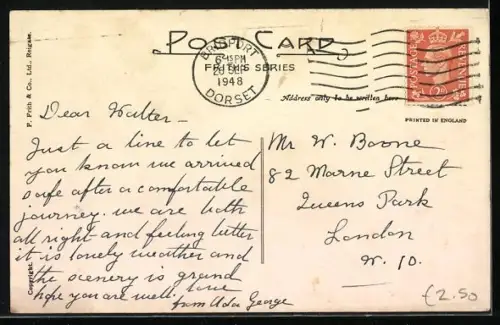 POST CARD
FRITH'S SERIES
BRIDPORT
6 15PM
1948
DORSET
POSTAGE
REVENUE
Address only to be written here
PRINTED IN ENGLAND
F. Frith & Co., Ltd., Reigate.
Copyright.
Dear Walter –
Just a line to let
you know we arrived
safe after a comfortable
journey. we are both
all right and feeling better
it is lovely weather and
the scenery is grand
hope you are well. love
from Ada George
Mr W. Boone
82 Marne Street
Queens Park
London
W. 10.
£2.50